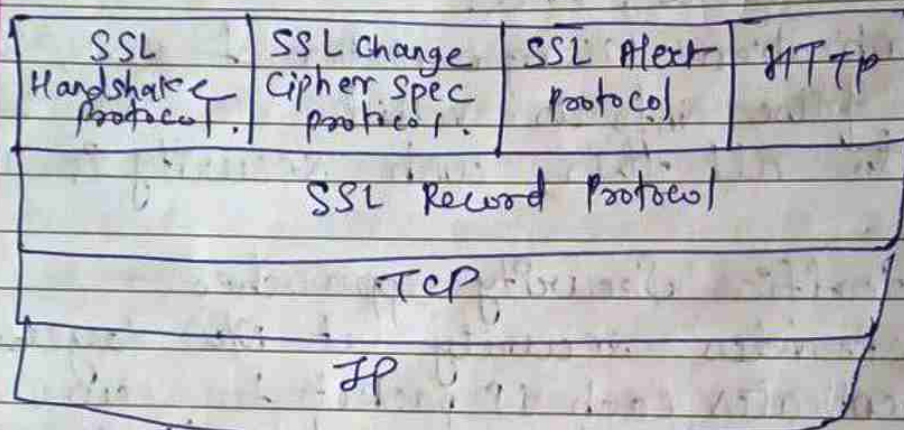 SSL
Handshake
protocol.
SSL Change
Cipher Spec
proticol.
SSL Alert
Protocol
HTTP
SSL Record Protocol
TCP
IP